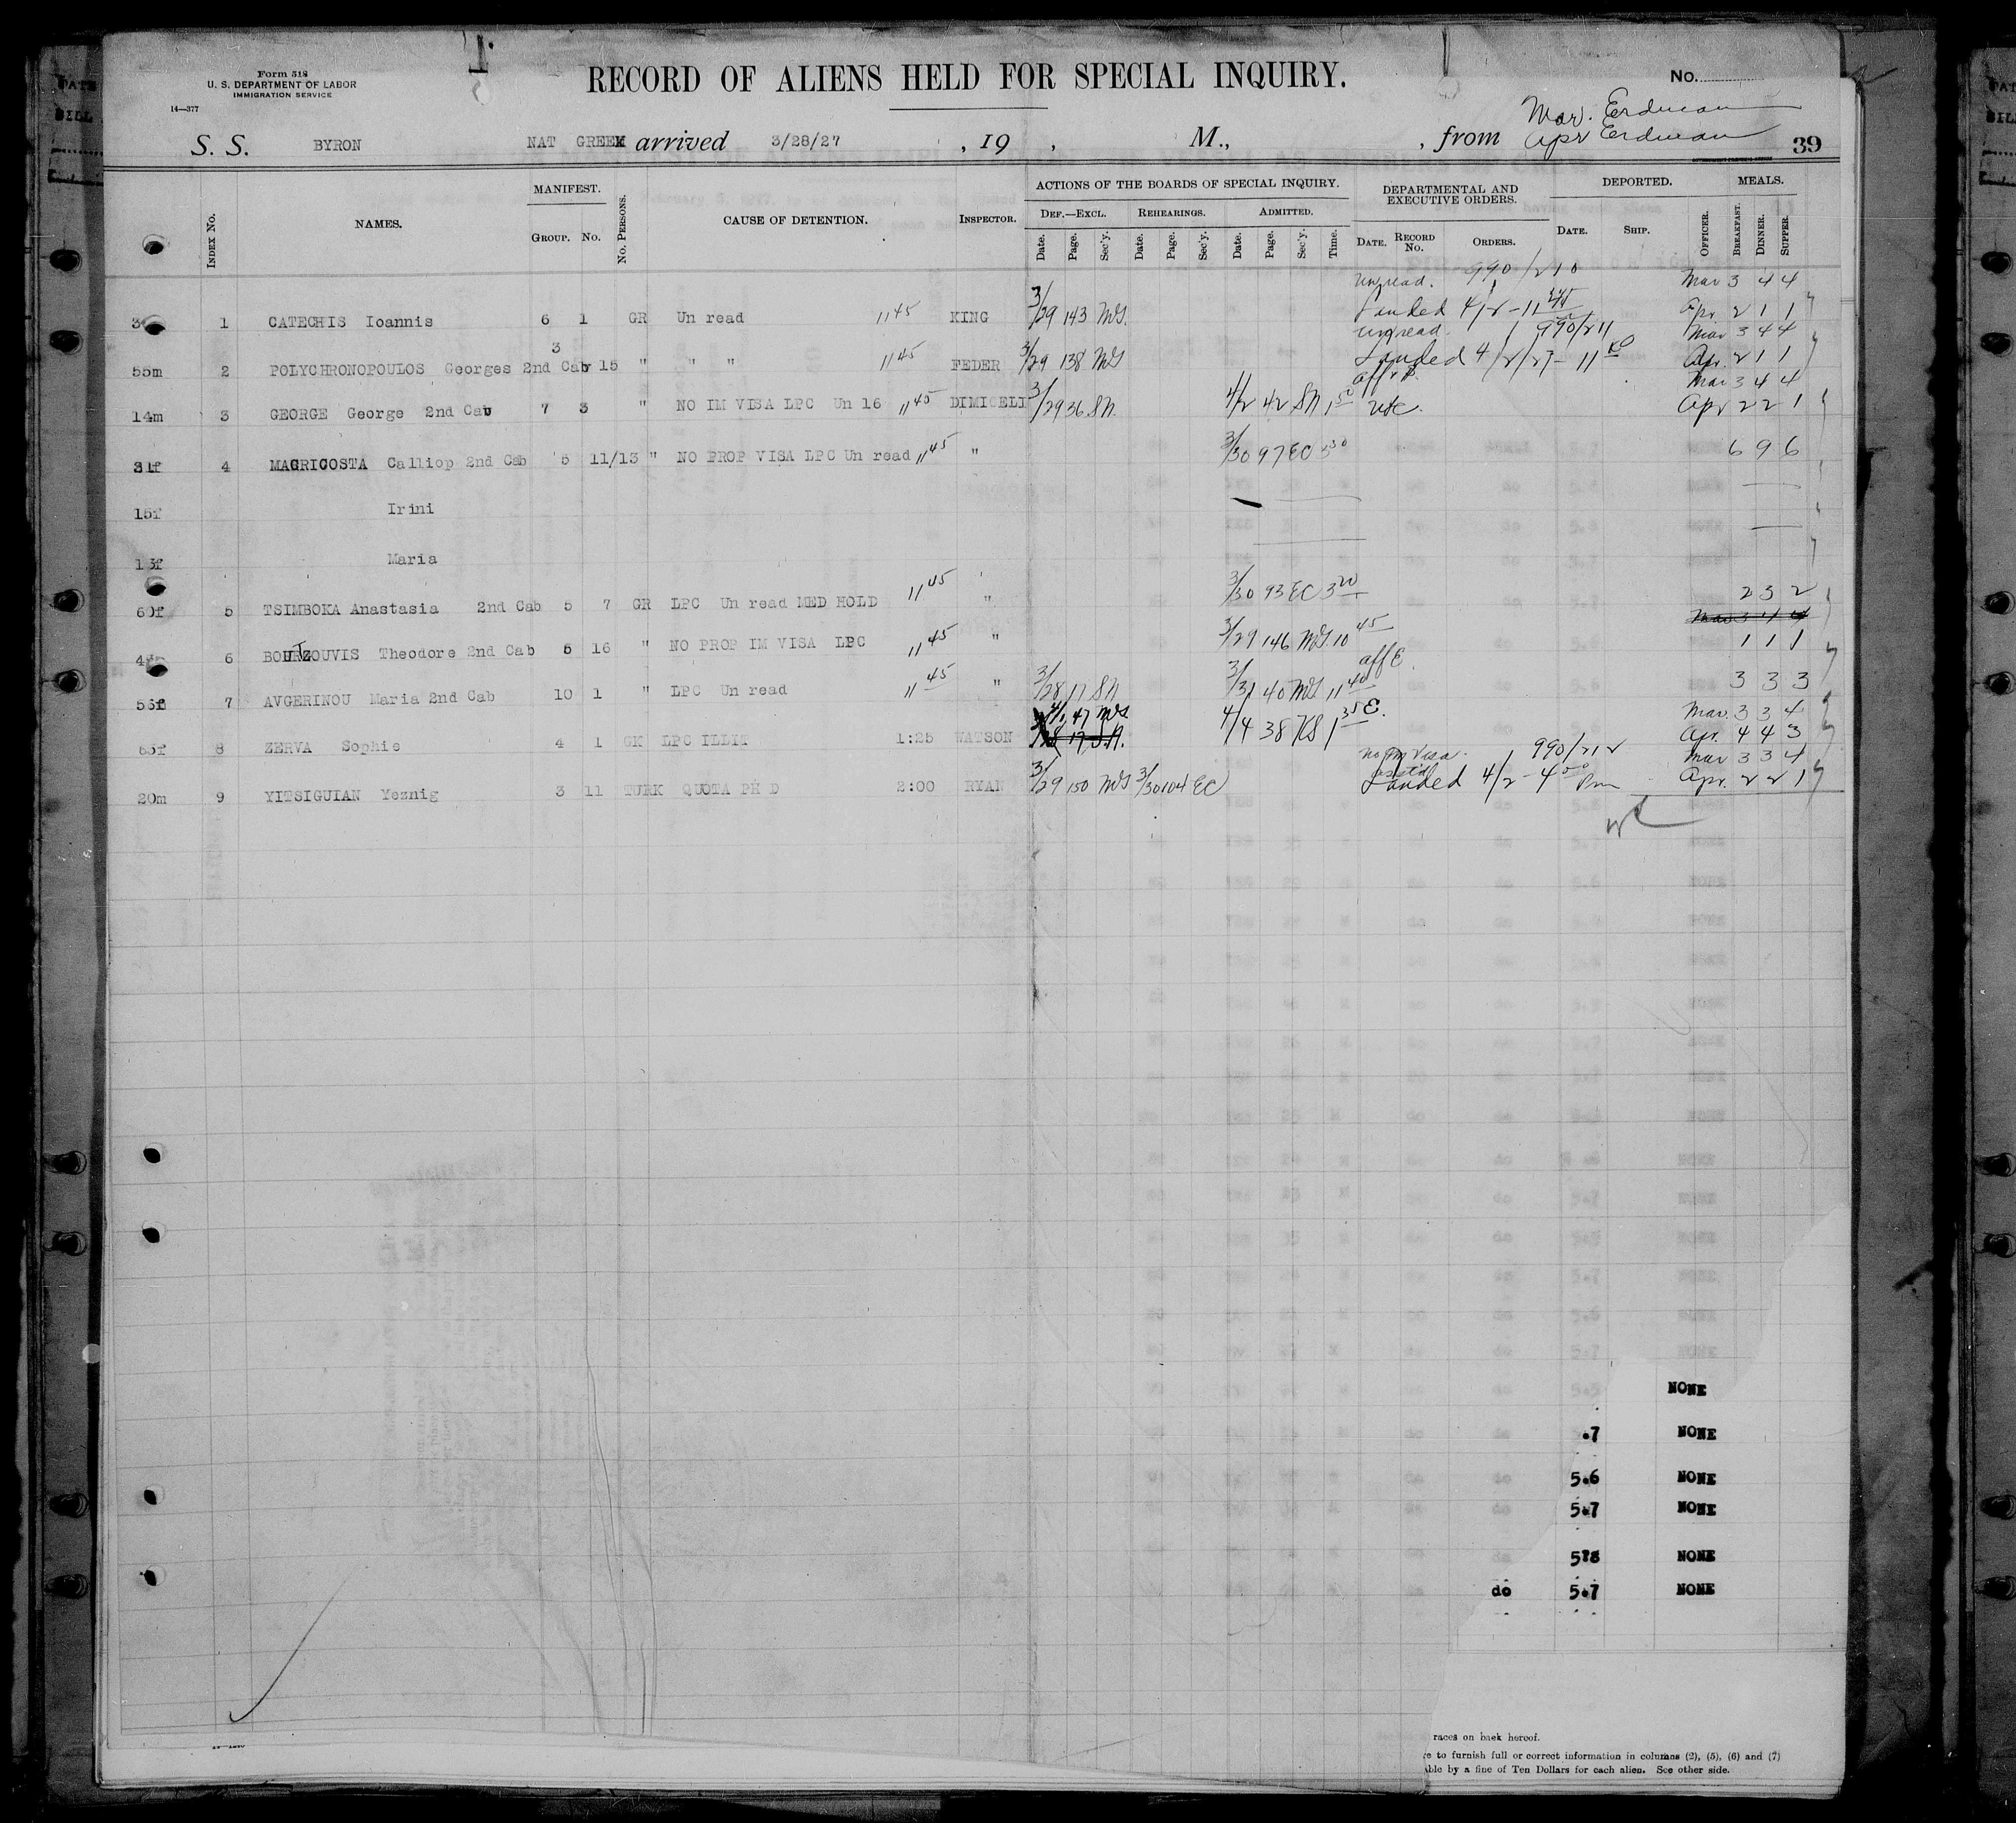 Form 518
U. S. DEPARTMENT OF LABOR
IMMIGRATION SERVICE
14—377
RECORD OF ALIENS HELD FOR SPECIAL INQUIRY.
No.
Mar. Erdman
Apr Erdman
S. S. BYRON NAT GREEK arrived 3/28/27 , 19 , M., , from 39
INDEX No. NAMES. MANIFEST. GROUP. No. No. PERSONS. CAUSE OF DETENTION. INSPECTOR.
ACTIONS OF THE BOARDS OF SPECIAL INQUIRY. DEPARTMENTAL AND EXECUTIVE ORDERS. DEPORTED. MEALS.
DEF.—EXCL. REHEARINGS. ADMITTED.
Date. Page. Sec'y. Date. Page. Sec'y. Date. Page. Sec'y. Time. DATE. RECORD No. ORDERS. DATE. SHIP. OFFICER. BREAKFAST. DINNER. SUPPER.
unread. 990/210 Mar 3 4 4
1 CATECHIS Ioannis 6 1 GR Un read 11 45 KING 3/29 143 MG. Landed 4/2 - 11 Apr. 2 1 1
unread. 990/211 Mar 3 4 4
55m 2 POLYCHRONOPOULOS Georges 2nd Cab 3 15 " " " 11 45 FEDER 3/29 138 MG Landed 4/2/27 - 11 Apr. 2 1 1
Mar 3 4 4
14m 3 GEORGE George 2nd Cab 7 3 " NO IM VISA LPC Un 16 11 45 DIMICELI 3/29 36 SN. 4/2 42 SN 1 50 Apr 2 2 1
31f 4 MAGRICOSTA Calliop 2nd Cab 5 11/13 " NO PROP VISA LPC Un read 11 45 " 3/30 97 EC 3 30 6 9 6
15f Irini
13f Maria
60f 5 TSIMBOKA Anastasia 2nd Cab 5 7 GR LPC Un read MED HOLD 11 45 " 3/30 93 EC 3 20 2 3 2
6 BOUTZOUVIS Theodore 2nd Cab 5 16 " NO PROP IM VISA LPC 11 45 " 3/29 146 MG. 10 45 1 1 1
aff E
7 AVGERINOU Maria 2nd Cab 10 1 " LPC Un read 11 45 " 3/28 17 SN 3/31 40 MG 11 40 3 3 3
4/1 47 MG Mar. 3 3 4
8 ZERVA Sophie 4 1 GK LPC ILLIT 1:25 WATSON 4/4 38 KS 1 35 E. Apr. 4 4 3
no im visa. 990/212 Mar 3 3 4
20m 9 YITSIGUIAN Yeznig 3 11 TURK QUOTA PH D 2:00 RYAN 3/29 150 MG 3/30 104 EC Landed 4/2 - 4 50 Pm Apr. 2 2 1
NONE
.7 NONE
5.6 NONE
5.7 NONE
5.8 NONE
do 5.7 NONE
races on back hereof.
re to furnish full or correct information in columns (2), (5), (6) and (7)
able by a fine of Ten Dollars for each alien. See other side.